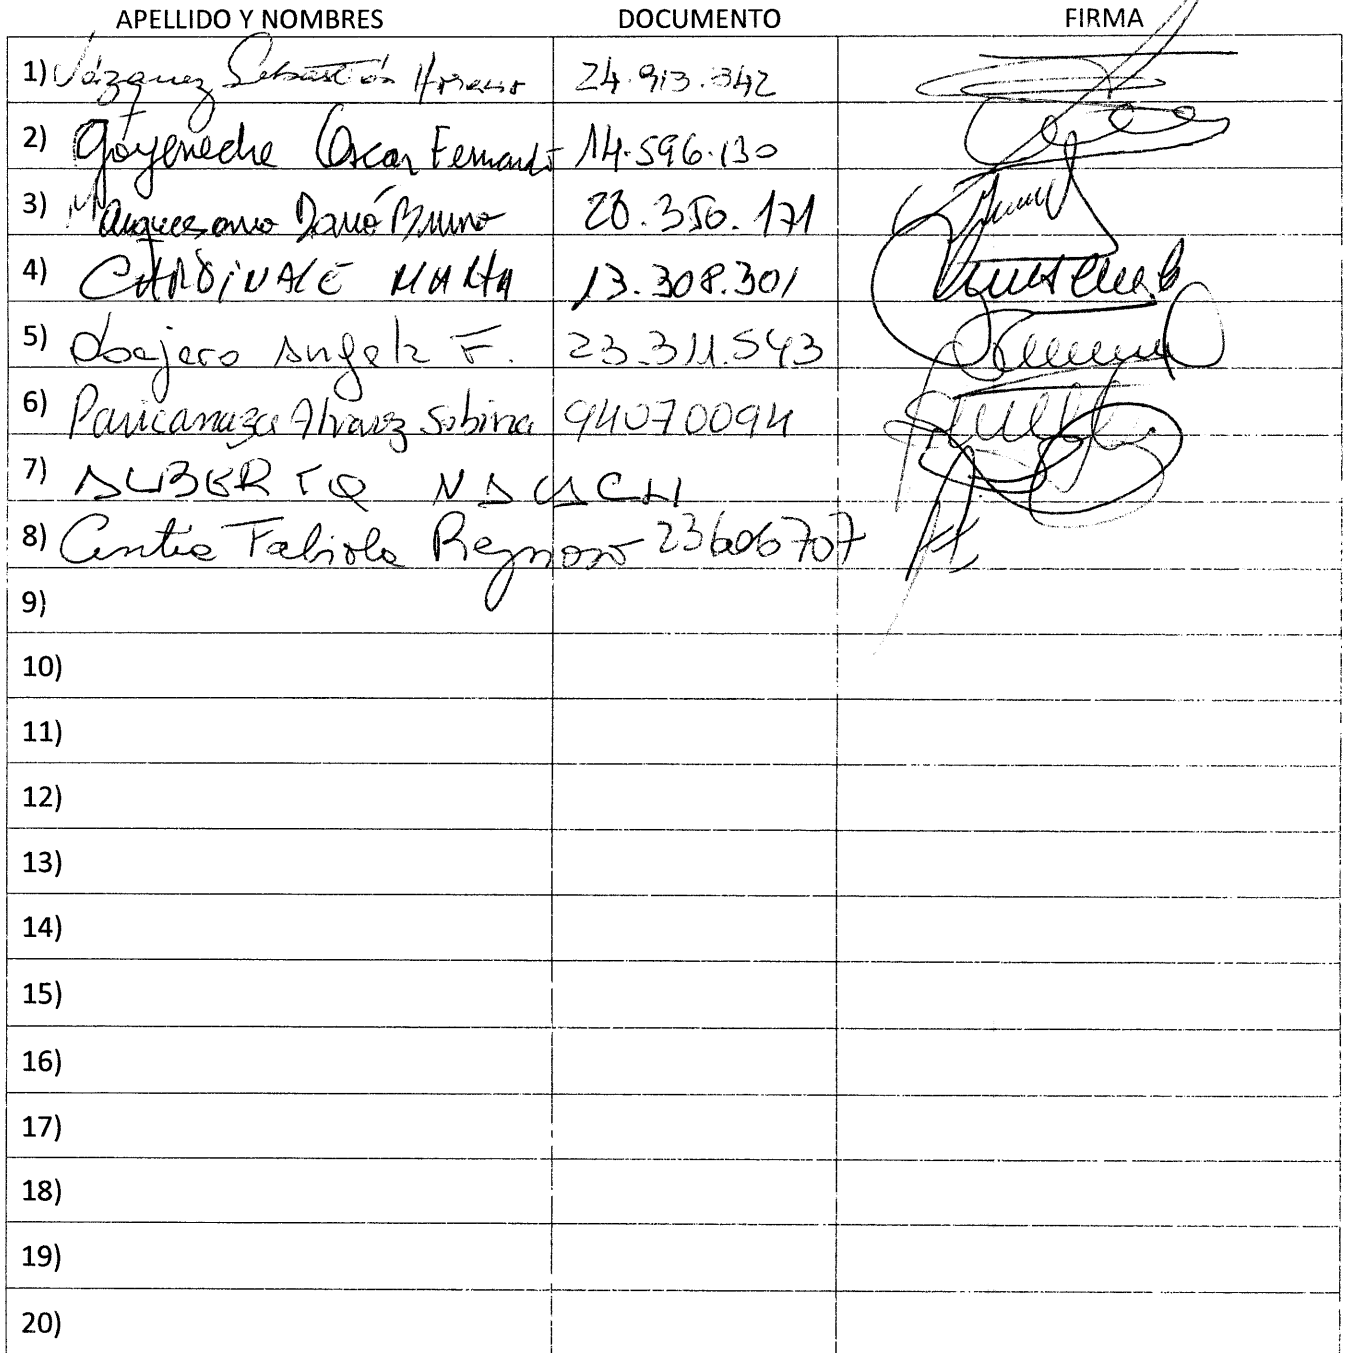 APELLIDO Y NOMBRES DOCUMENTO FIRMA
1) Vázquez Sebastián Horacio 24.913.342
2) Goyeneche Oscar Fernando 14.596.130
3) Darío Bruno 28.350.171
4) CARDINALE MARTA 13.308.301
5) Angela F. 23.311.543
6) Paricanaza Alvarez Sabina 94070094
7) ALBERTO
8) Cintia Fabiola Reynoso 23606707
9)
10)
11)
12)
13)
14)
15)
16)
17)
18)
19)
20)